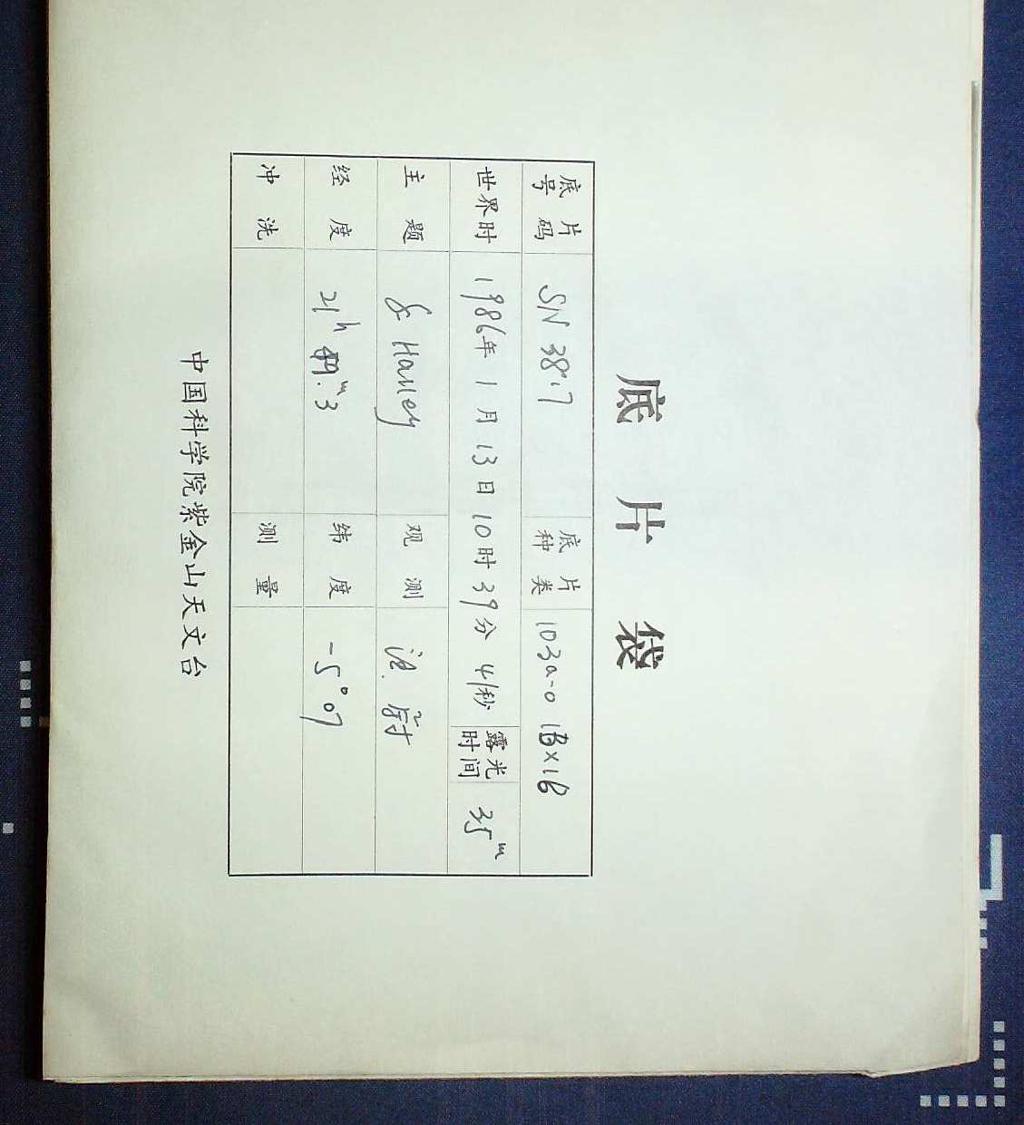 底片袋
底片号码 SN 3817 底片种类 103a-O 1B×1B
世界时 1986年1月13日10时39分41秒 露光时间 35ᵐ
主题 & Halley 观测
经度 21ʰ ᵐ.3 纬度 -5°07
冲洗 测量
中国科学院紫金山天文台